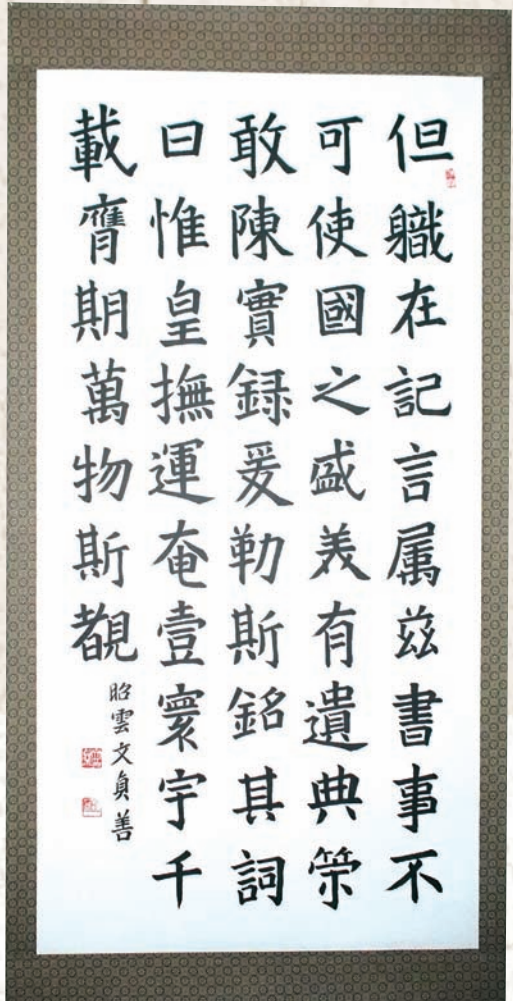 但職在記言属兹書事不
可使國之盛美有遺典策
敢陳實録爰勒斯銘其詞
曰惟皇撫運奄壹寰宇千
載膺期萬物斯覩
昭雲文貞善